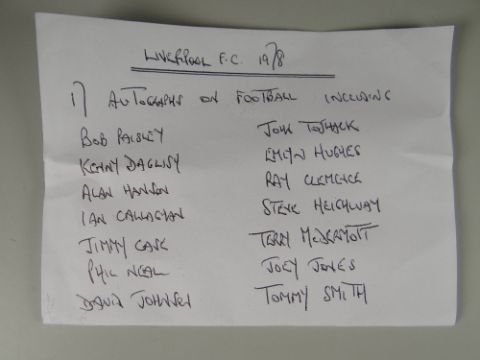 LIVERPOOL F.C. 1978
17 AUTOGRAPHS ON FOOTBALL INCLUDING
BOB PAISLEY
KENNY DAGLISH
ALAN HANSEN
IAN CALLAGHAN
JIMMY CASE
PHIL NEAL
DAVID JOHNSON
JOHN TOSHACK
EMLYN HUGHES
RAY CLEMENCE
STEVE HEIGHWAY
TERRY McDERMOTT
JOEY JONES
TOMMY SMITH